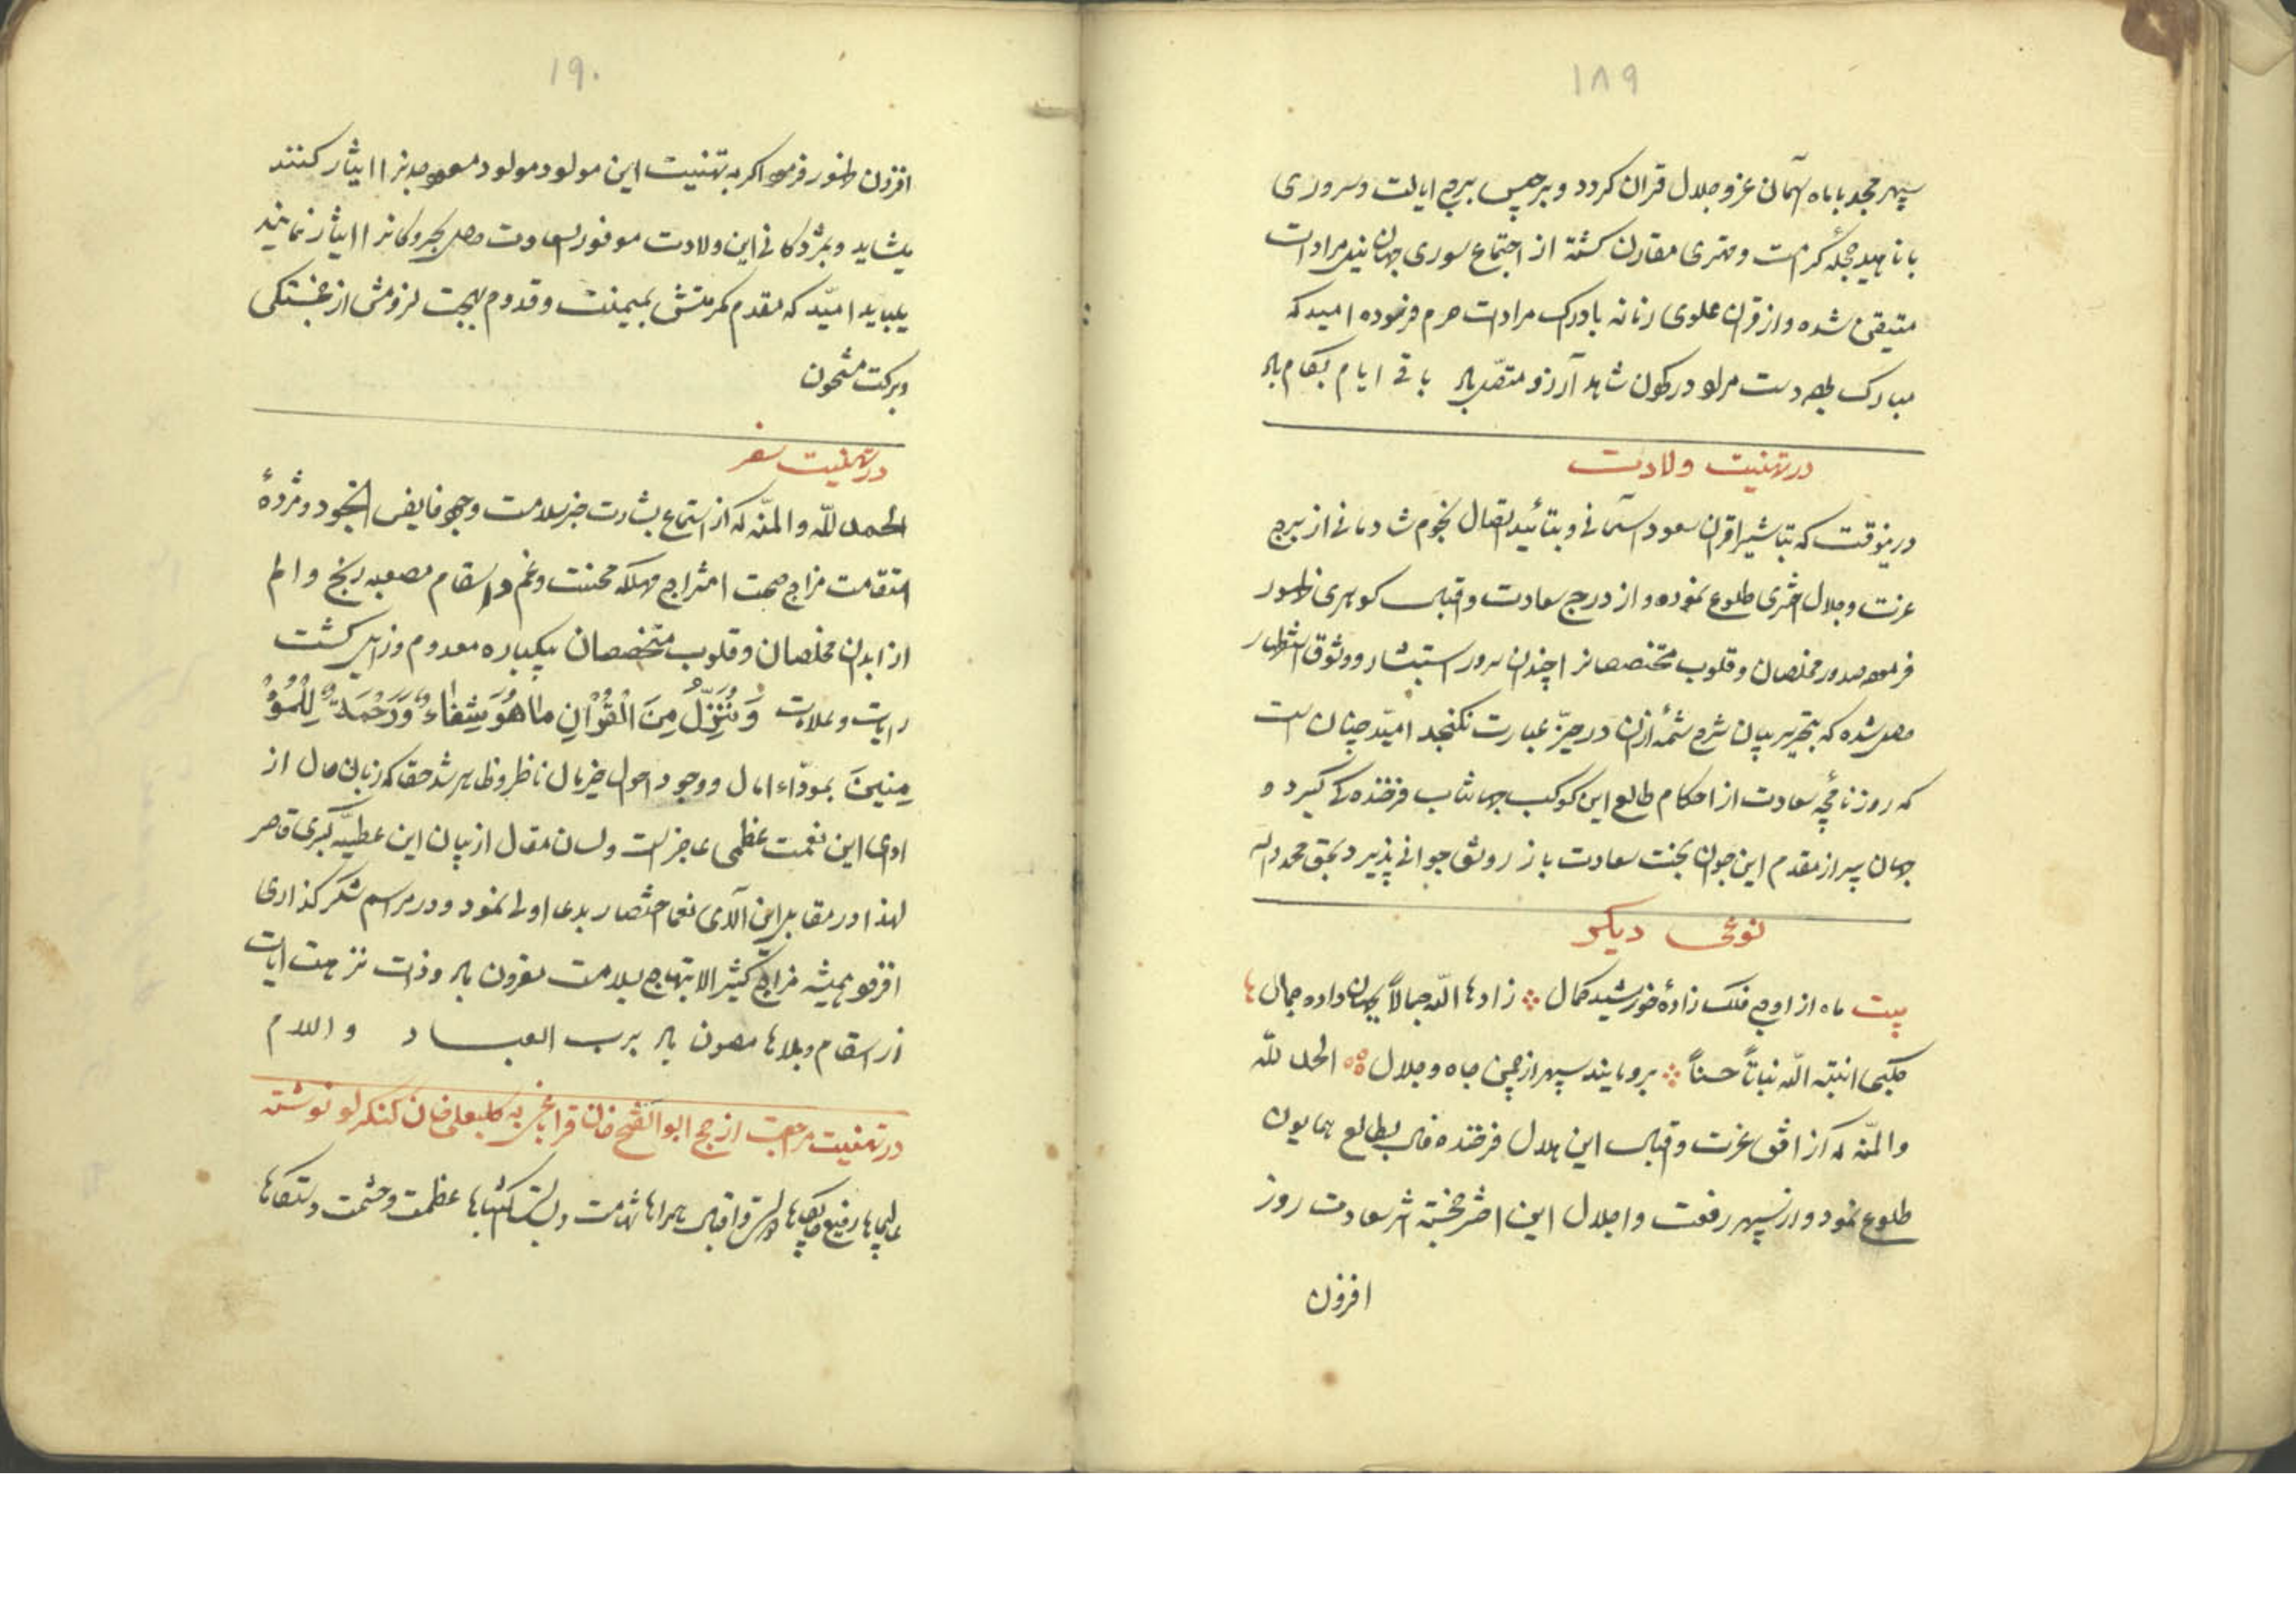 ۱۸۹
سپهر مجد با ماه آسمان عز و جلال قران کردد و برجیس برج ایالت و سروری
با ناهید حجلهٔ کرامت و مهتری مقارن کشته از اجتماع سوری جهان مرادات
متیقن شده و از قران علوی زمانه بادراک مرادات خرم فرموده امید که
مبارک بوده دست مراد در کون شاهد آرزو باد باقی ایام بکام باد
در تهنیت ولادت
درینوقت که تباشیر اقران سعود آسمانی و بتائید اتصال نجوم شادمانی از برج
عزت و جلال اختری طلوع نموده و از درج سعادت و اقبال کوهری ظهور
فرموده صدور مخلصان و قلوب مختصصانرا چندان سرور و استبشار و وثوق استظهار
حاصل شده که بتحریر بیان شرح شمهٔ ازان در حیّز عبارت نکنجد امیّد چنان است
که روزنامچه سعادت از احکام طالع این کوکب جهانتاب فرخنده کی کیرد و
جهان پیر از مقدم این جوان بخت سعادت باز رونق جوانی پذیرد بحق محمد و اله
نوعی دیکر
بیت ماه از اوج فلک زادهٔ خورشید کمال زادها اللّه جمالاً بجهان داده جمال ها
انبته اللّه نباتاً حسناً برومایند سپهر از چمن جاه و جلال الحمد للّه
والمنّه که از افق عزت و اقبال این هلال فرخنده فال بطالع همایون
طلوع نمود و از سپهر رفعت و اجلال این اختر خجسته اثر سعادت روز
افزون
۱۹۰
افزون ظهور فرموده اکر به تهنیت این مولود مولود مسعود جانرا ایثار کنند
یشاید و بمژدکانی این ولادت موفور السعادت حاصل بحر و کانرا ایثار نمایند
بباید امیّد که مقدم مکرمتش بمیمنت و قدوم بهجت لزومش از خجستکی
و برکت مشحون
در تهنیت سفر
الحمد للّه والمنّه که از استماع بشارت خبر سلامت وجود فایض الجود و مژدهٔ
استقامت مزاج صحت امتزاج مهلکه محنت و غم و اسقام مصعبه رنج و الم
از ابدان مخلصان و قلوب متخصصان بیکباره معدوم و زایل کشت
رایات و علامات وَنُنَزِّلُ مِنَ الْقُرْاٰنِ مٰا هُوَ شِفٰاءٌ وَرَحْمَةٌ لِلْمُؤْ
مِنینَ بمودّاء امال و وجود احوال خیر مال ناظر و ظاهر شد حقا که زبان حال از
ادای این نعمت عظمی عاجز است و لسان مقال از بیان این عطیّه کبری قاصر
لهذا در مقابل این آلای نعما اختصار بدعا اولی نمود و در مراسم شکر کذاری
افزود همیشه مزاج کثیر الابتهاج بسلامت مقرون باد و ذات نزهت ایات
از اسقام و بلاها مصون باد برب العباد والسلام
در تهنیت مراجعت از حج ابوالفتح خان قراباغی به کلبعلی خان کنکرلو نوشته
عالیجاها رفیع جایکاها و اقبال همراها شهامت و بسالت اکتناها عظمت و حشمت دستکاها